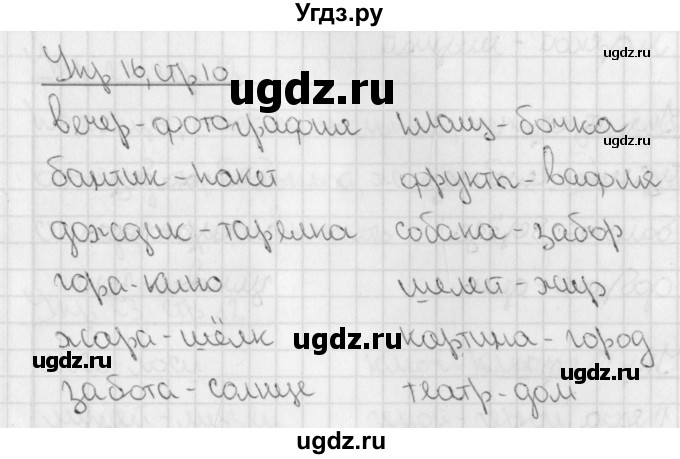 Угдз.ру
Упр 16, стр 10
вечер-фотография плащ-бочка
бантик-пакет фрукты-вафля
дождик-тарелка собака-забор
гора-кино шелест-жир
жара-шёлк картина-город
забота-солнце театр-дом
ugdz.ru
ugdz.ru
ugdz.ru
ugdz.ru
ugdz.ru
ugdz.ru
ugdz.ru
ugdz.ru
ugdz.ru